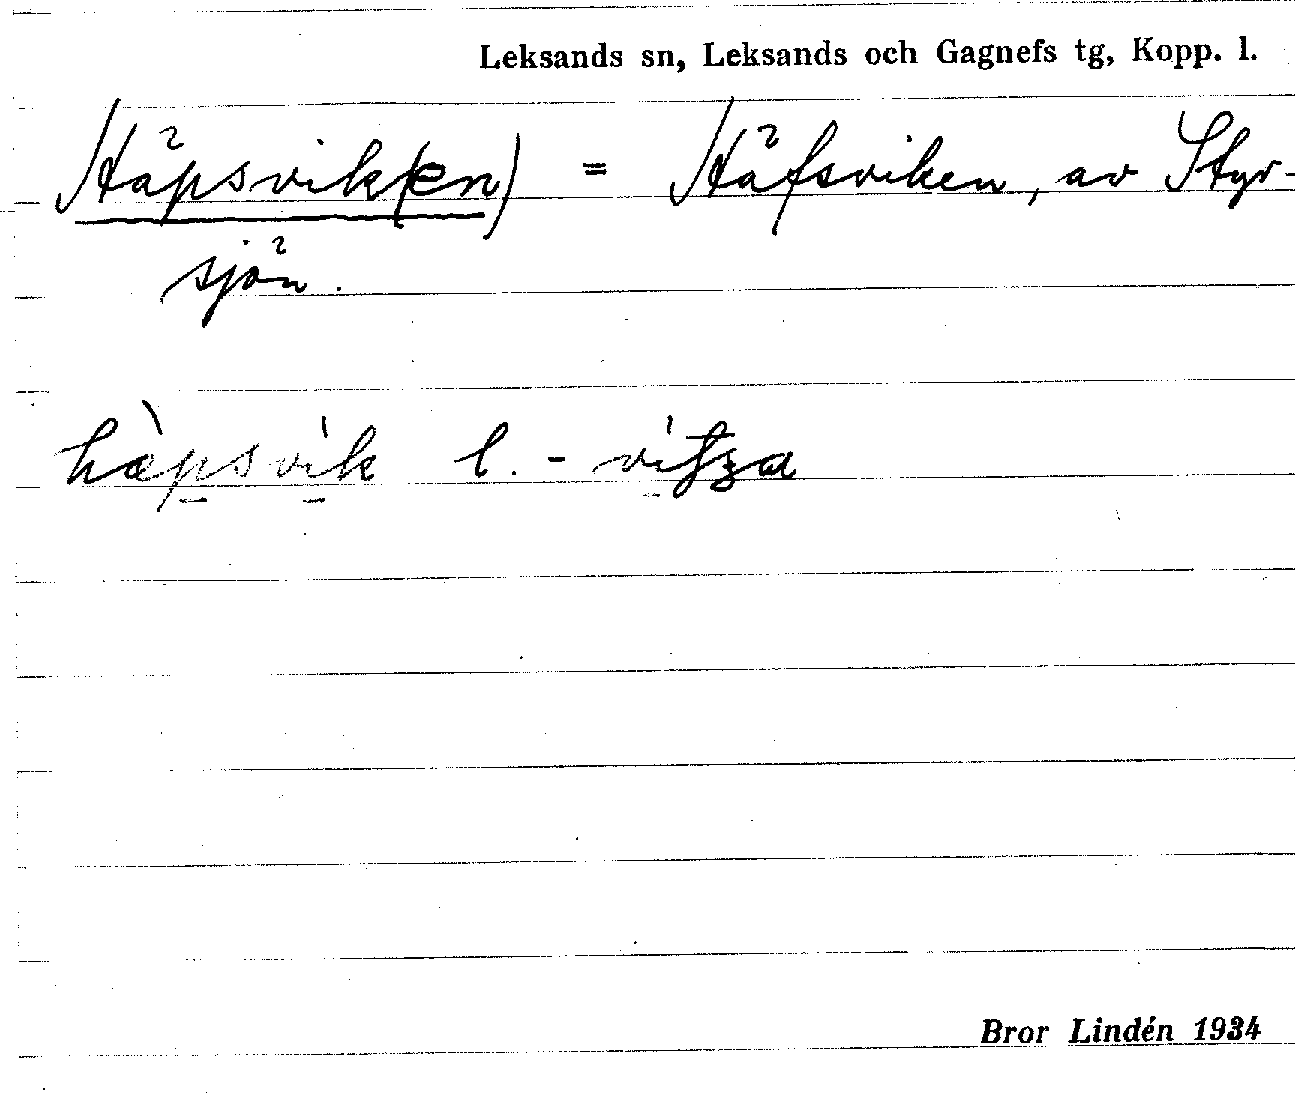 Leksands sn, Leksands och Gagnefs tg, Kopp. l.
Häpsvik(en) = Häfsviken, av Styr-
sjön.
hàpsvik l. - vitza
Bror Lindén 1934